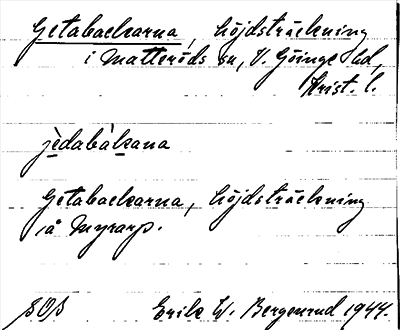 Getabackarna, höjdsträckning
i Matteröds sn, V. Göinge hd,
Krist. l.
jèdabàkana
Getabackarna, höjdsträckning
å Myrarp.
Erik W. Bergenrud 1944.